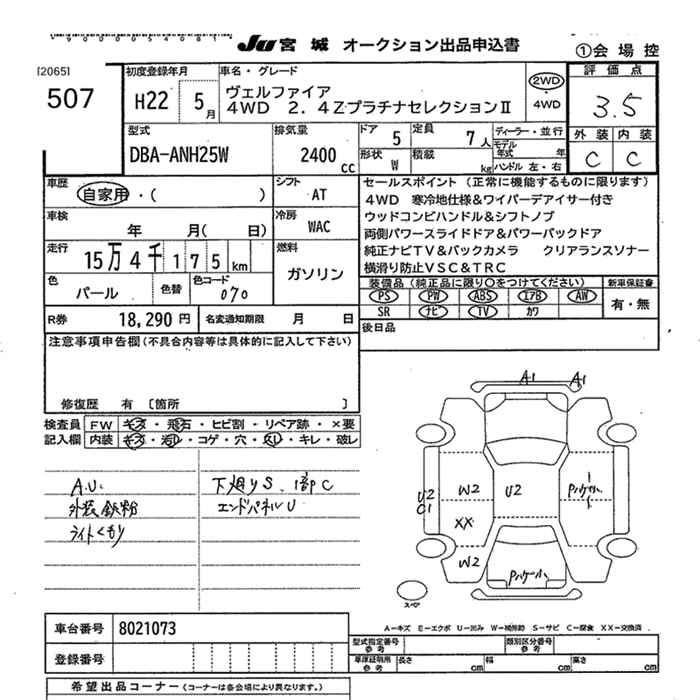 JU 宮城 オークション出品申込書
①会場控
[2065]
507
初度登録年月
H22 5月
車名・グレード
ヴェルファイア
4WD 2.4Zプラチナセレクション II
2WD
・
4WD
評価点
3.5
外装 内装
C C
型式
DBA-ANH25W
排気量
2400 cc
ドア 5
定員 7人
ディーラー・並行
モデル年式 年
形状 W
積載 kg
ハンドル 左・右
車歴
自家用・( )
シフト
AT
車検
年 月( 日)
冷房
WAC
走行
15万4千175km
燃料
ガソリン
色
パール
色替
色コード
070
R券 18,290円
名変通知期限 月 日
セールスポイント(正常に機能するものに限ります)
4WD 寒冷地仕様&ワイパーデアイサー付き
ウッドコンビハンドル&シフトノブ
両側パワースライドドア&パワーバックドア
純正ナビTV&バックカメラ クリアランスソナー
横滑り防止VSC&TRC
装備品(純正品に限り○をつけてください)
新車保証書
PS PW ABS エアB AW
有・無
SR ナビ TV カワ
後日品
注意事項申告欄(不具合内容等は具体的に記入して下さい)
修復歴 有 [箇所 ]
検査員記入欄
FW キズ・飛石・ヒビ割・リペア跡・×要
内装 キズ・汚れ・コゲ・穴・スレ・キレ・破レ
A.U.
外装鉄粉
ライトくもり
下廻りS、1部C
エンドパネルU
A1 A1
U2
C1
W2
XX
W2
U2
スペア
A—キズ E—エクボ U—凹み W—補修跡 S—サビ C—腐食 XX—交換済
車台番号 8021073
登録番号
型式指定番号 参考
類別区分番号 参考
車庫証明用 参考
長さ cm
幅 cm
高さ cm
希望出品コーナー(コーナーは各会場により異なります。)